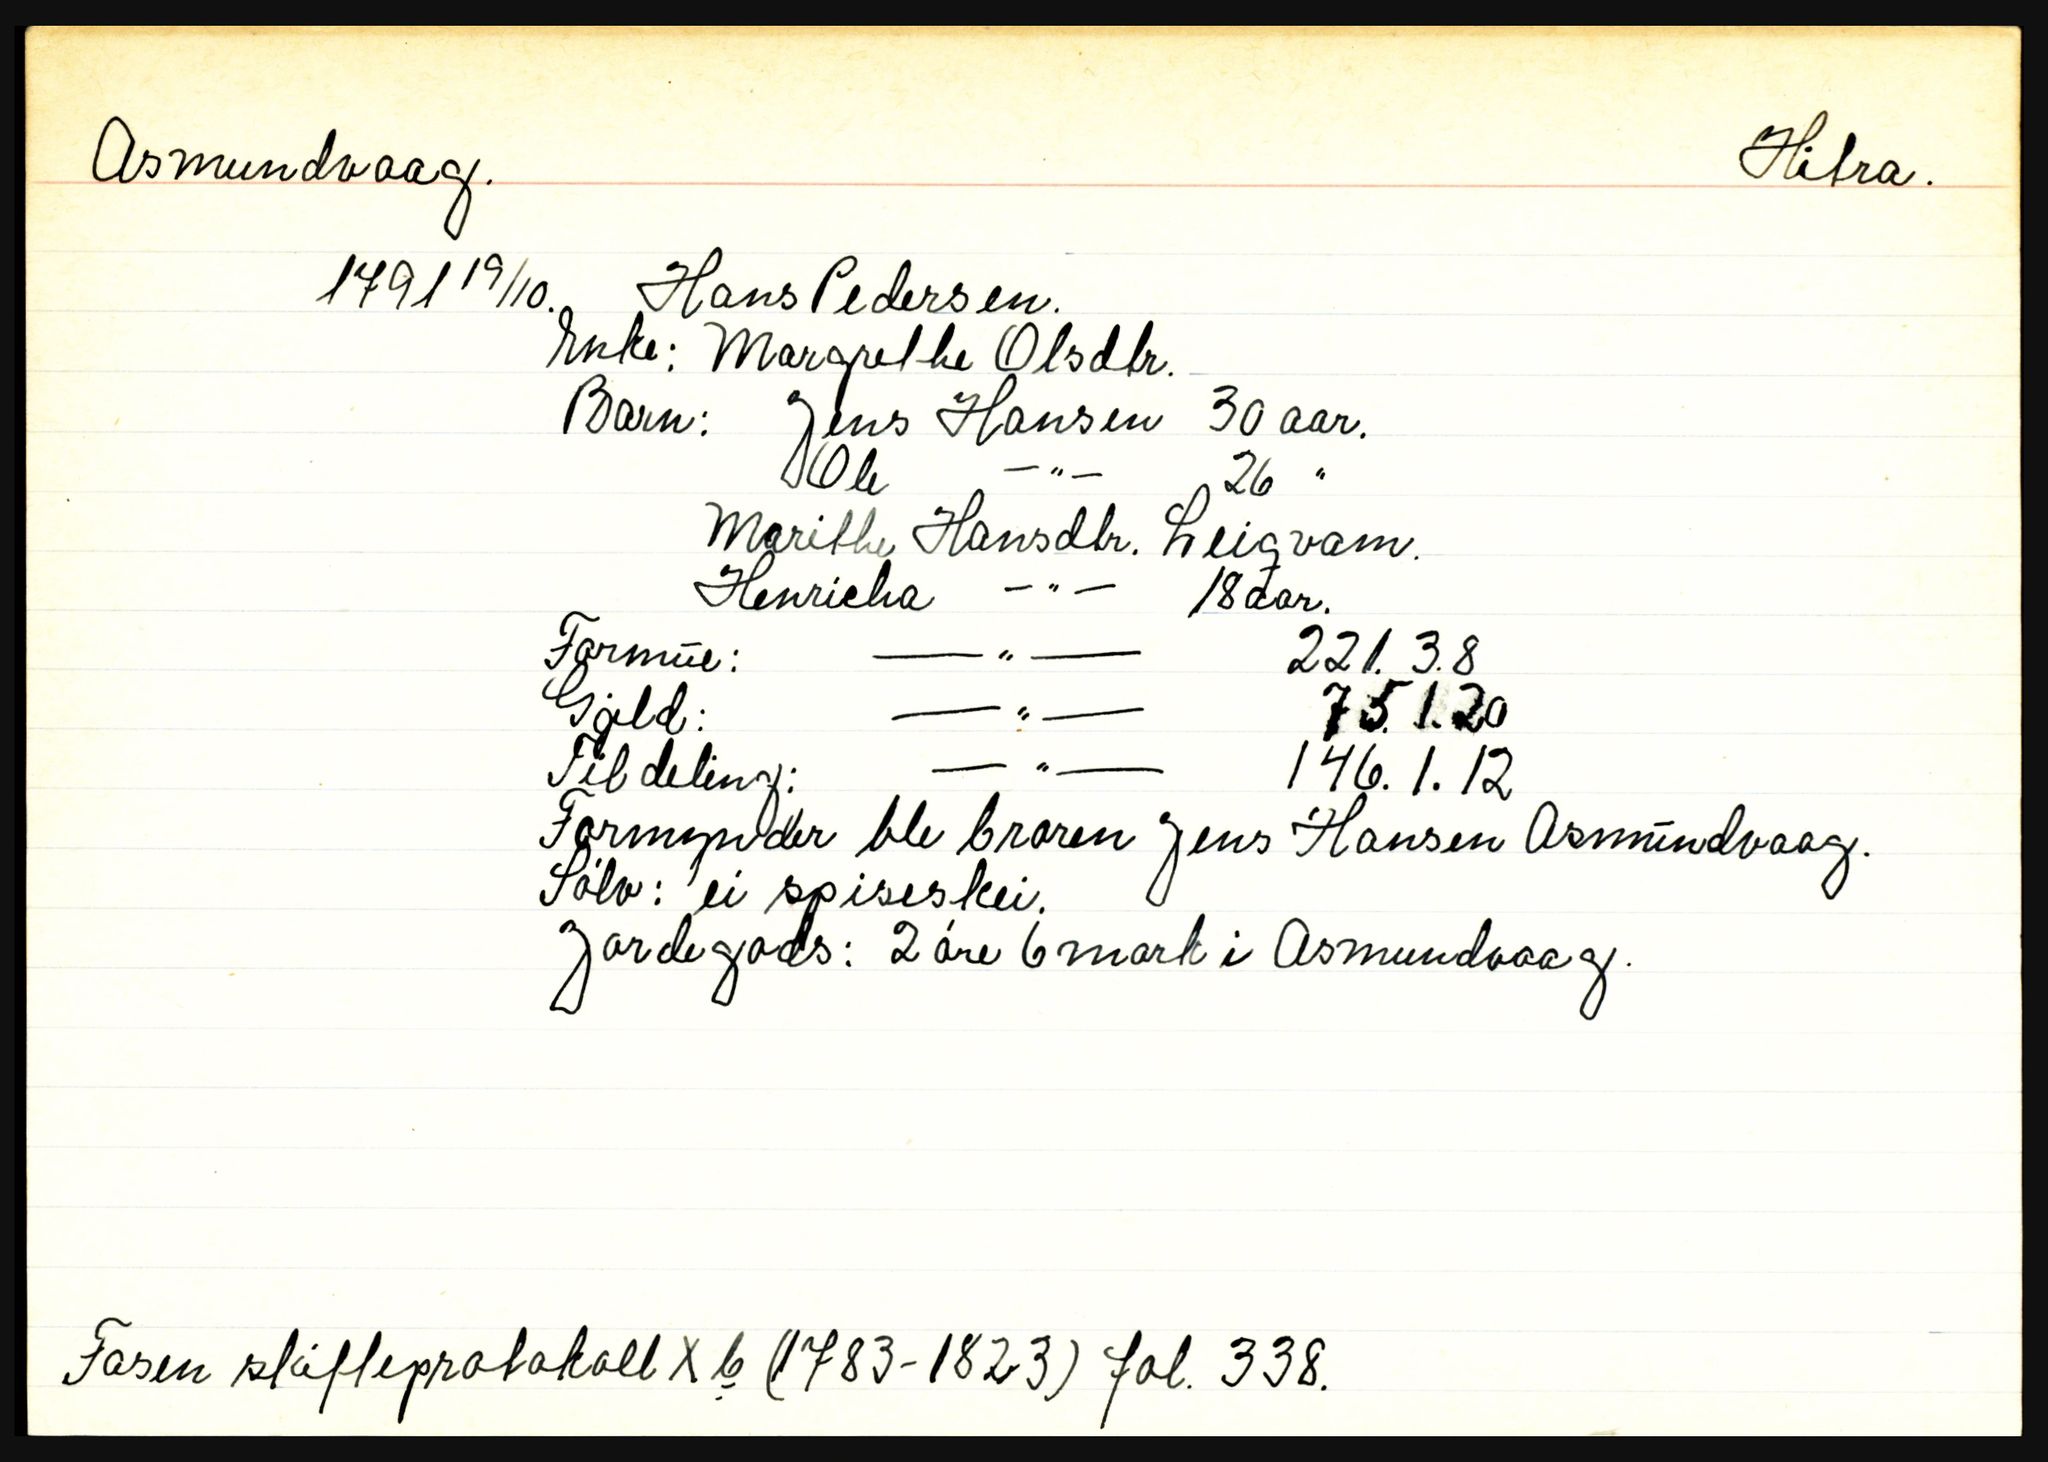 Asmundvaag. Hitra.
1791 19/10. Hans Pedersen.
Enke: Margrethe Olsdtr.
Barn: Jens Hansen 30 aar.
Ole —"— 26 "
Marithe Hansdtr. Leigvam.
Henricha —"— 18 aar.
Formŭe: —"— 221. 3. 8
Gjeld: —"— 75. 1. 20
Til deling: —"— 146. 1. 12
Formynder ble broren Jens Hansen Asmŭndvaag.
Sölv: ei spiseskei.
Jordegods: 2 öre 6 mark i Asmundvaag.
Fosen skifteprotokoll X b (1783-1823) fol. 338.